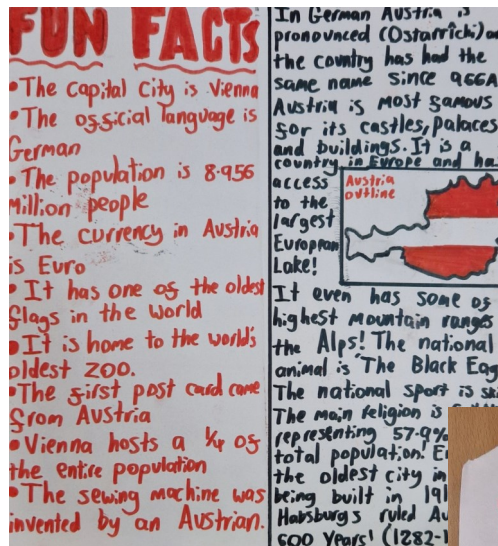 FUN FACTS
• The capital city is Vienna
• The official language is
German
• The population is 8.956
million people
• The currency in Austria
is Euro
• It has one of the oldest
flags in the world
• It is home to the world's
oldest zoo.
• The first post card came
from Austria
• Vienna hosts a ¼ of
the entire population
• The sewing machine was
invented by an Austrian.
In German Austria is
pronounced (Ostarrîchi) an
the country has had the
same name since 966A
Austria is most famous
for its castles, palaces
and buildings. It is a
country in Europe and ha
access
to the
largest
European
Lake!
Austria
outline
It even has some of
highest mountain ranges
the Alps! The national
animal is 'The Black Eag
The national sport is ski
The main religion is
representing 57.9%
total population! E
the oldest city in
being built in 191
Habsburgs ruled Au
600 Years! (1282-1